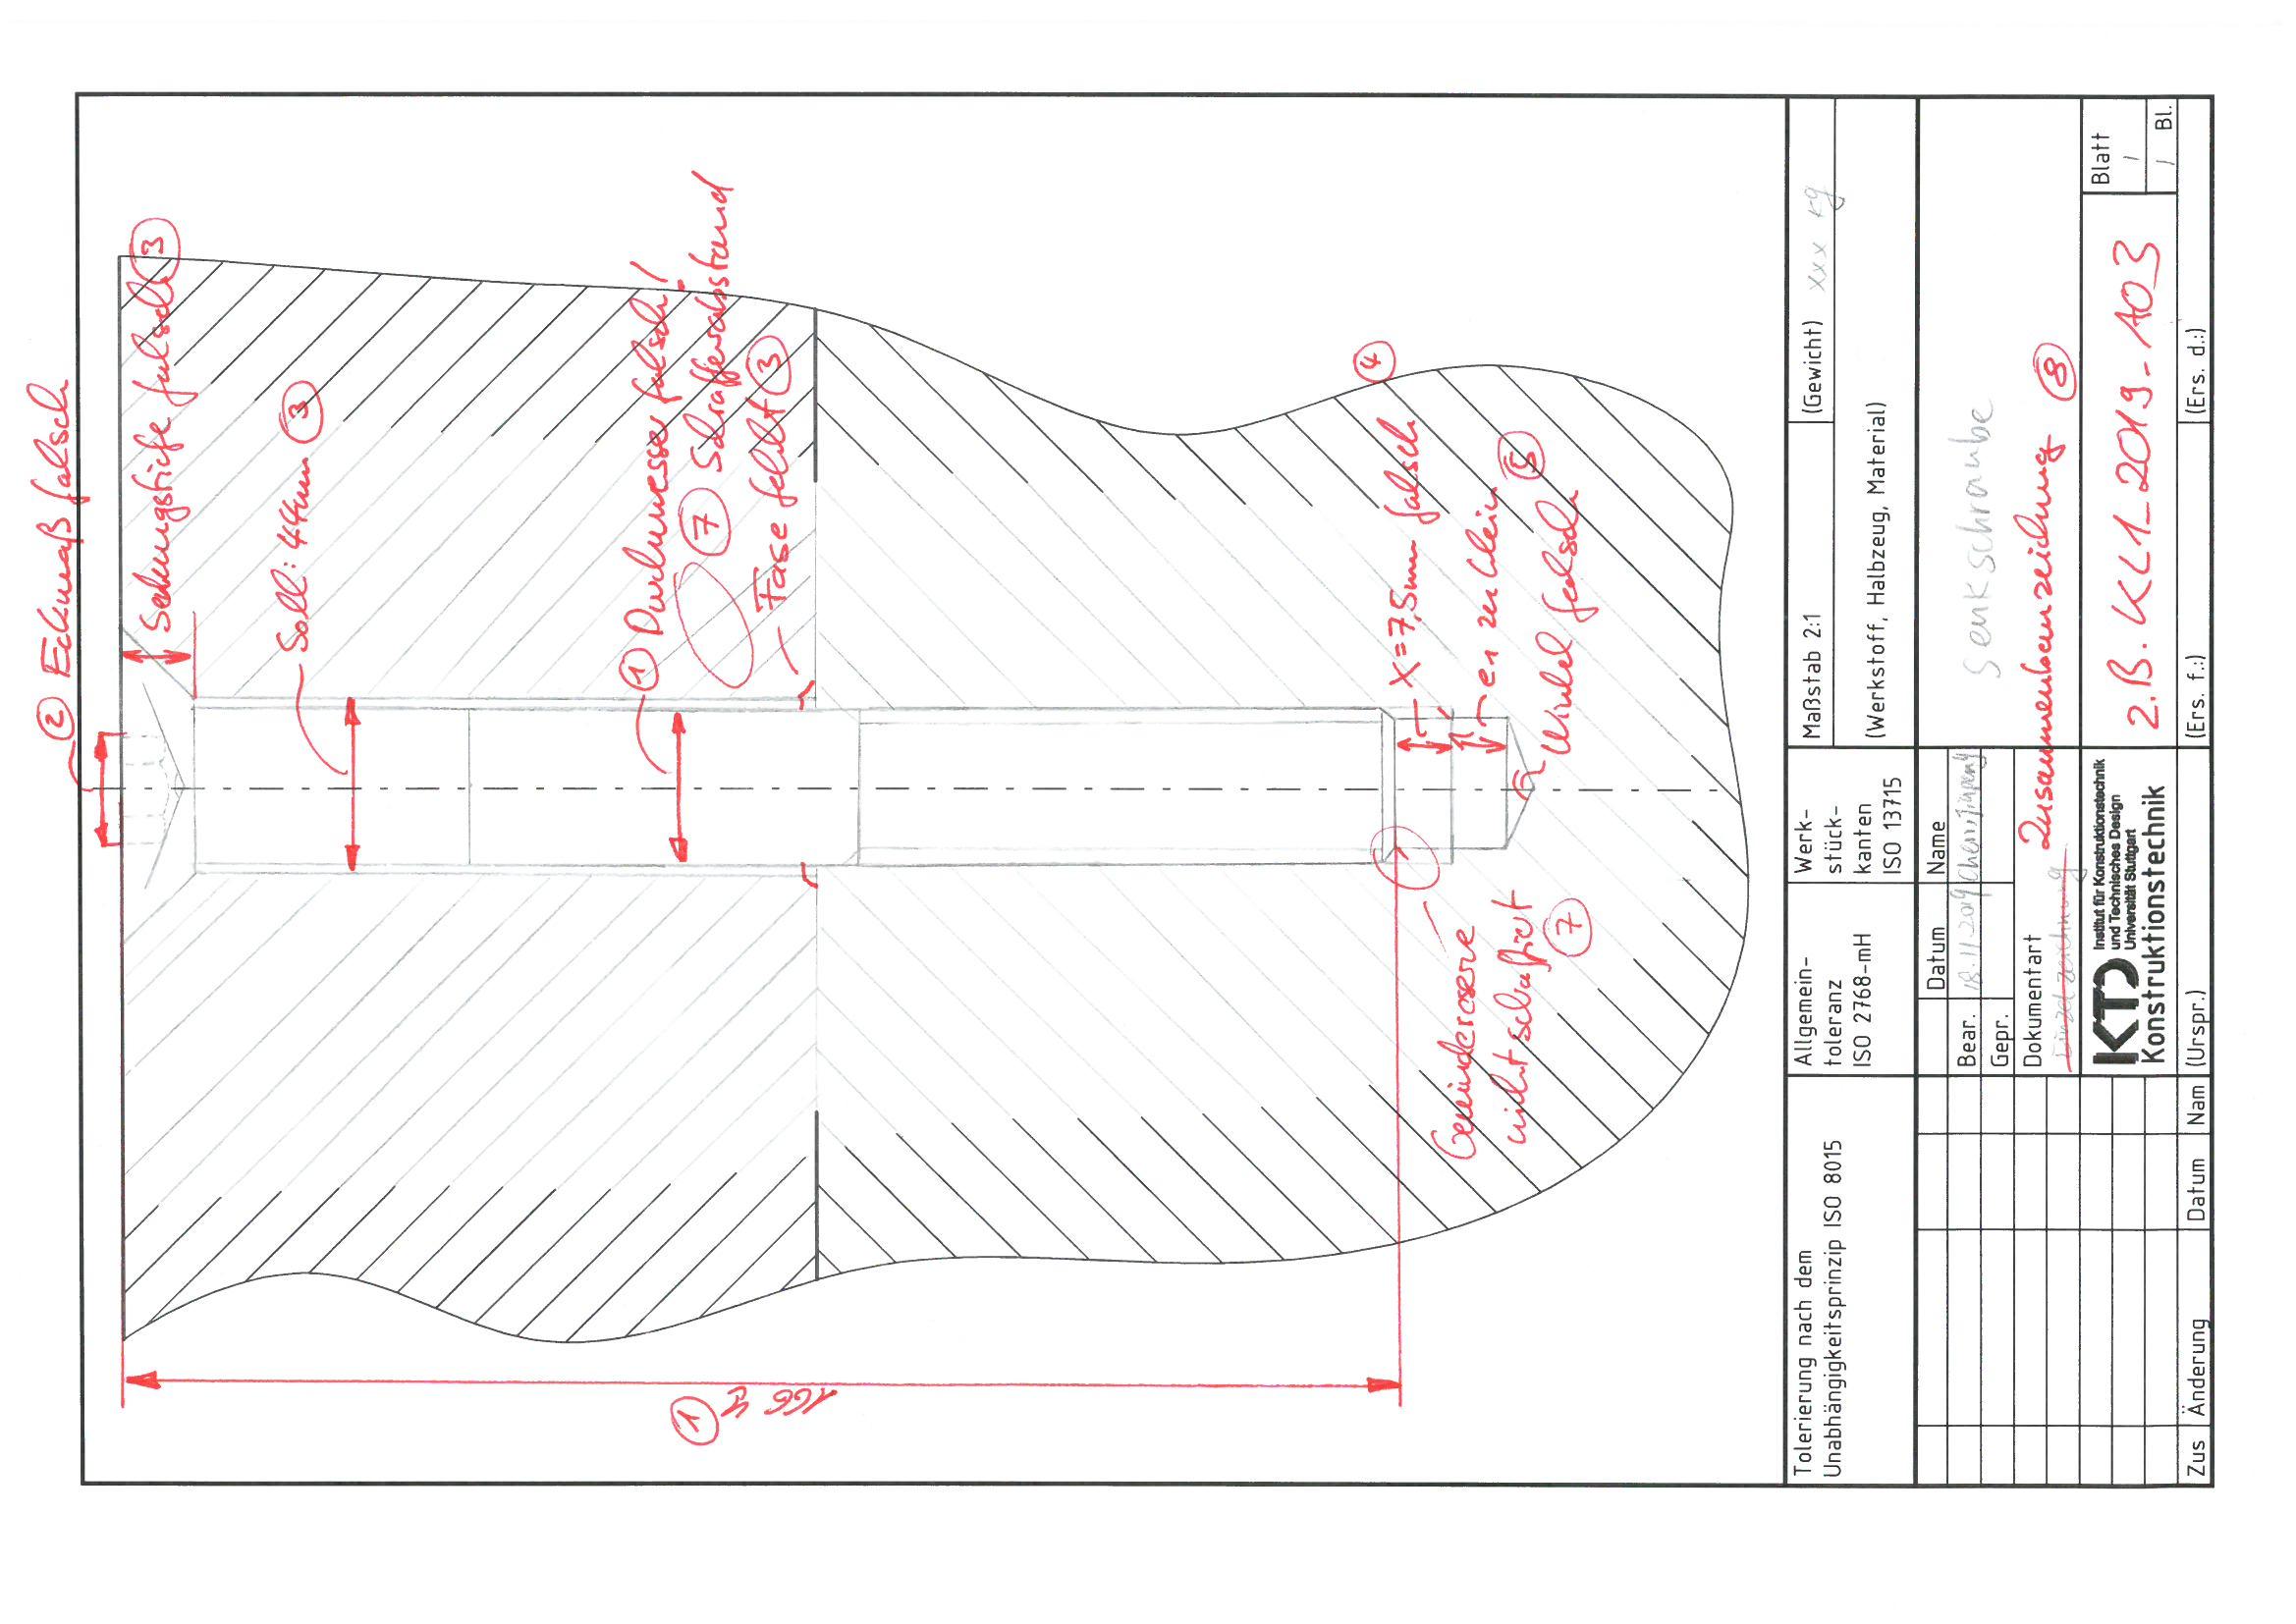 ② Eckmaß falsch
Senkungstiefe falsch ③
Soll: 44mm ③
① Durchmesser falsch!
⑦ Schraffenabstand
Fase fehlt ③
④
x=7,5mm falsch
e1 zu klein ⑤
Winkel falsch
Gewinde
nicht schraffiert
⑦
①
166
Tolerierung nach dem
Unabhängigkeitsprinzip ISO 8015
Allgemein-
toleranz
ISO 2768-mH
Werk-
stück-
kanten
ISO 13715
Maßstab 2:1
(Gewicht) xxx kg
(Werkstoff, Halbzeug, Material)
Datum
Name
Bear.
18.11.2019
Gepr.
Senkschraube
Dokumentart
Einzelzeichnung
Zusammenbauzeichnung ⑧
KTD
Institut für Konstruktionstechnik
und Technisches Design
Universität Stuttgart
Konstruktionstechnik
z.B. KL1_2019-103
Blatt
1
1 Bl.
Zus
Änderung
Datum
Nam
(Urspr.)
(Ers. f.:)
(Ers. d.:)